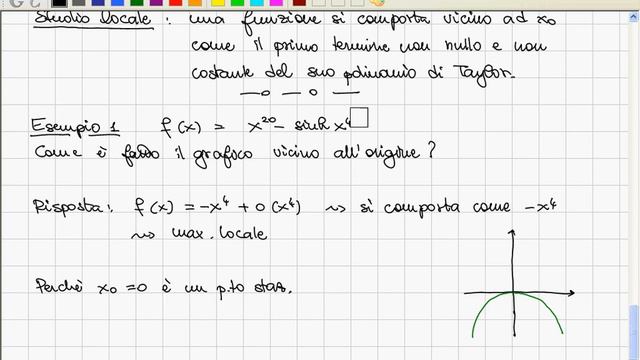 Studio locale : una funzione si comporta vicino ad x₀
come il primo termine non nullo e non
costante del suo polinomio di Taylor.
Esempio 1 f(x) = x²⁰ - sinh x⁴
Come è fatto il grafico vicino all'origine?
Risposta: f(x) = -x⁴ + o(x⁴) ⇝ si comporta come -x⁴
⇝ max. locale
Perchè x₀ = 0 è un p.to staz.